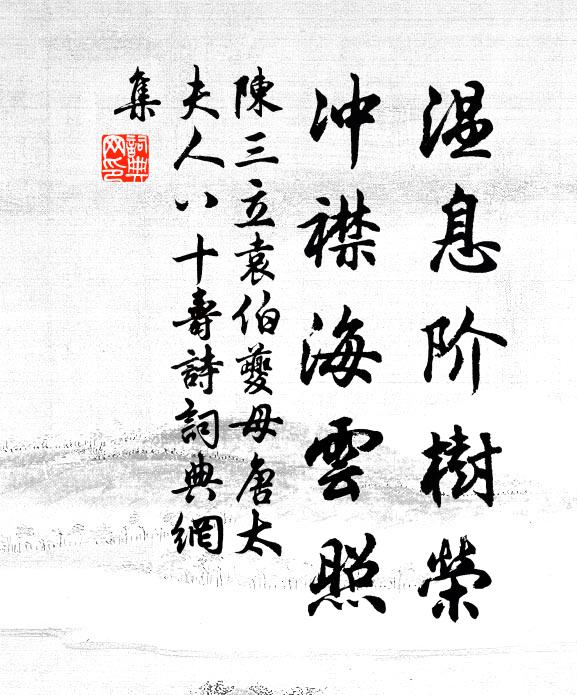 温息阶樹榮
沖襟海雲照
陳三立袁伯夔母唐太
夫人八十壽詩詞典網
集
詞典
网印